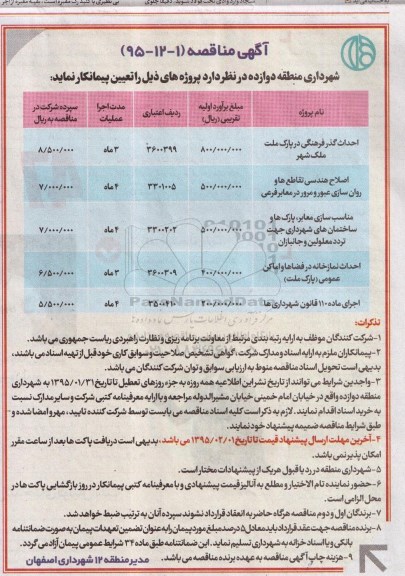 آگهی مناقصه (۱-۱۲-۹۵)
شهرداری منطقه دوازده در نظر دارد پروژه های ذیل را تعیین پیمانکار نماید:
نام پروژه	مبلغ برآورد اولیه تقریبی (ریال)	ردیف اعتباری	مدت اجرا عملیات	سپرده شرکت در مناقصه به ریال
احداث گذر فرهنگی در پارک ملت ملک شهر	۸۰۰/۰۰۰/۰۰۰	۳۶۰۰۳۹۹	۳ ماه	۸/۵۰۰/۰۰۰
اصلاح هندسی تقاطع ها و روان سازی عبور و مرور در معابر فرعی	۵۰۰/۰۰۰/۰۰۰	۳۳۰۱۰۰۵	۴ ماه	۷/۰۰۰/۰۰۰
مناسب سازی معابر، پارک ها و ساختمان های شهرداری جهت تردد معلولین و جانبازان	۵۰۰/۰۰۰/۰۰۰	۳۳۰۰۲۰۲	۴ ماه	۷/۰۰۰/۰۰۰
احداث نمازخانه در فضاها و اماکن عمومی (پارک ملت)	۴۰۰/۰۰۰/۰۰۰	۳۶۰۰۳۰۹	۳ ماه	۶/۵۰۰/۰۰۰
اجرای ماده ۱۱۰ قانون شهرداری ها	۲۰۰/۰۰۰/۰۰۰	۴ ماه	۵/۵۰۰/۰۰۰
تذکرات:
۱-شرکت کنندگان موظف به ارایه رتبه بندی مرتبط از معاونت برنامه ریزی و نظارت راهبردی ریاست جمهوری می باشند.
۲-پیمانکاران ملزم به ارایه اسناد و مدارک شرکت، گواهی تشخیص صلاحیت و سوابق کاری خود قبل از تهیه اسناد می باشند،
بدیهی است تحویل اسناد مناقصه منوط به ارزیابی سوابق و توان شرکت کنندگان می باشد.
۳-واجدین شرایط می توانند از تاریخ نشر این اطلاعیه همه روزه به جز روزهای تعطیل تا تاریخ ۱۳۹۵/۰۱/۳۱ به شهرداری
منطقه دوازده واقع در خیابان امام خمینی خیابان مشیرالدوله مراجعه و با ارایه معرفینامه کتبی شرکت و سایر مدارک نسبت
به خرید اسناد اقدام نمایند. لازم به ذکر است کلیه اسناد مناقصه می بایست توسط شرکت کننده تایید، مهر و امضا شده و
طبق شرایط مناقصه ضمیمه پیشنهاد خود نمایند.
۴-آخرین مهلت ارسال پیشنهاد قیمت تا تاریخ ۱۳۹۵/۰۲/۰۱ می باشد، بدیهی است دریافت پاکت ها بعد از ساعت مقرر
امکان پذیر نمی باشد.
۵-شهرداری منطقه در رد یا قبول هر یک از پیشنهادات مختار است.
۶-حضور نماینده تام الاختیار و مطلع به آنالیز قیمت پیشنهادی و با معرفینامه کتبی پیمانکار در روز بازگشایی پاکت ها در
محل الزامی است.
۷-برندگان اول و دوم مناقصه هرگاه حاضر به انعقاد قرارداد نشوند سپرده آنان به ترتیب ضبط خواهد شد.
۸-برنده مناقصه جهت عقد قرارداد باید معادل ۵ درصد مبلغ مورد پیمان را به عنوان تضمین تعهدات پیمان به صورت ضمانتنامه
بانکی و یا اسناد خزانه به شهرداری تسلیم نماید. این ضمانتنامه طبق ماده ۳۴ شرایط عمومی پیمان آزاد می گردد.
۹-هزینه چاپ آگهی مناقصه به عهده برنده مناقصه می باشد.
مدیر منطقه ۱۲ شهرداری اصفهان